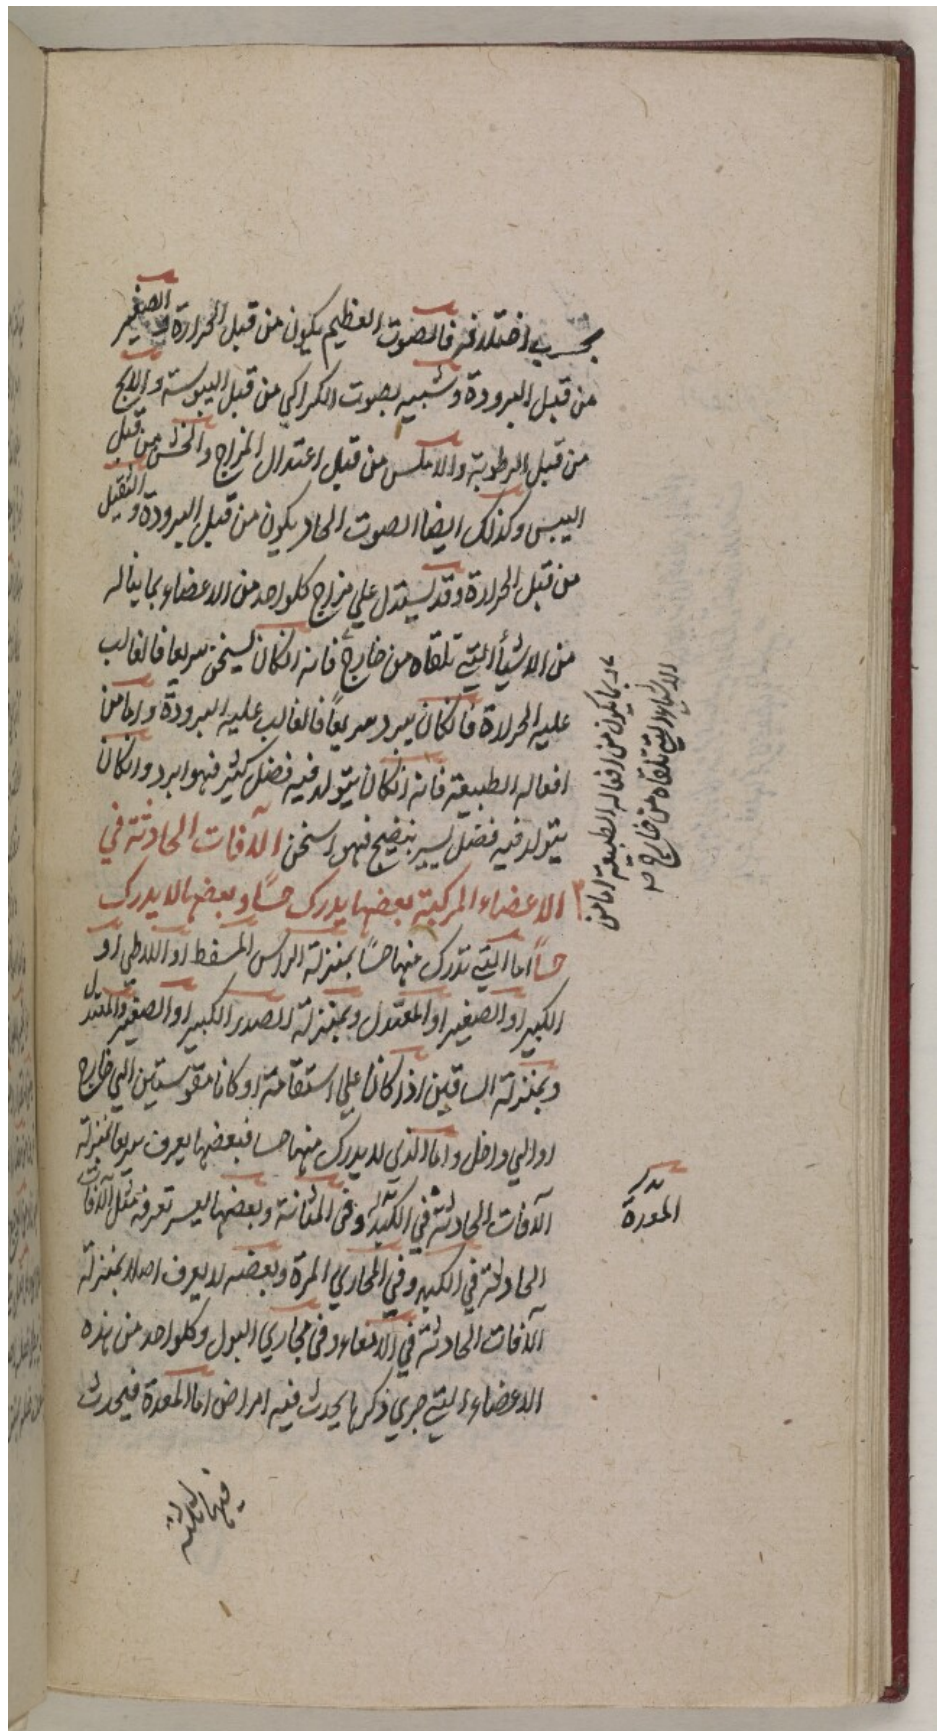 بحسب اختلافه فالصوت العظيم يكون من قبل الحرارة والصغير
من قبل البرودة وشبيه بصوت الكراكي من قبل اليبوسة والابح
من قبل الرطوبة والاملس من قبل اعتدال المزاج والخشن من قبل
اليبس وكذلك ايضا الصوت الحاد يكون من قبل البرودة والثقيل
من قبل الحرارة وقد يستدل علي مزاج كلواحد من الاعضاء بما يناله
من الاشيأ التي تلقاه من خارج فانه انكان يسخن سريعا فالغالب
عليه الحرارة فانكان يبرد سريعاً فالغالب عليه البرودة واما من
افعاله الطبيعة فانه انكان يتولد فيه فضل كثير فهو ابرد وانكان
يتولد فيه فضل يسير بنضيج فهو اسخن الآفات الحادثة في
الاعضاء المركبة بعضها يدرك حسًا وبعضها لا يدرك
حساً اما التي تدرك منها حساً بمنزلة الراس المسفط او اللاطي او
الكبير او الصغير او المعتدل وبمنزلة الصدر الكبير او الصغير والمعتدل
وبمنزلة الساقين اذا كانا علي استقامة او كانا مقوستين الي خارج
او الي داخل واما الذي لا يدرك منها حسا فبعضها يعرف سريعا بمنزلة
الآفات الحادثة في الكبد وفي المثانة وبعضها يعسر تعرفه مثل الآفات
الحادثة في الكبد وفي المجاري المرة وبعضه لا يعرف اصلا بمنزلة
الآفات الحادثة في الامعاء وفي مجاري البول وكلواحد من هذه
الاعضاء التي جري ذكرها يحدث فيه امراض اما المعدة فيحدث
فيها ثلثة
وبما يكون من افعاله الطبيعة اما من
الاشياء التي تلقاه من خارج
المعدة